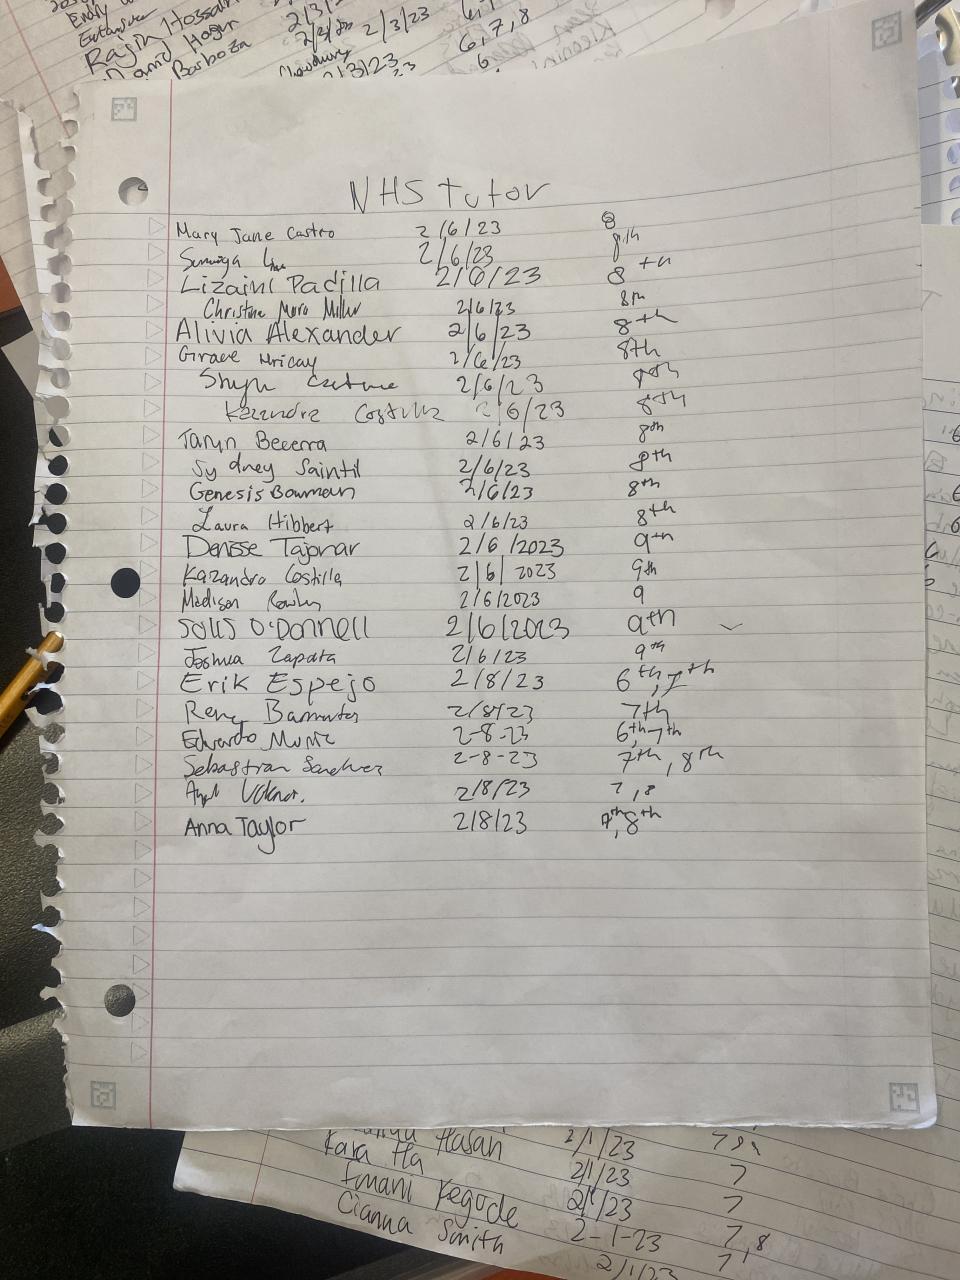 Rajin Hossain 2/3/
David Hogn 2/3/23 2/3/23 6,7,8
Barboza Chowdhury 6,
2/3/23
NHS Tutor
Mary Jane Castro 2/6/23 8
2/6/23 8th
Lizaini Padilla 2/6/23 8th
Christine Mora Miller 2/6/23 8th
Alivia Alexander 2/6/23 8th
Grace 2/6/23 8th
2/6/23 8th
Kazandra Costilla 2/6/23 8th
Taryn Becerra 2/6/23 8th
Sydney Saintil 2/6/23 8th
Genesis Bowman 2/6/23 8th
Laura Hibbert 2/6/23 8th
Denisse Tajonar 2/6/2023 9th
Kazandra Costilla 2/6/2023 9th
Madison 2/6/2023 9
Solis O'Donnell 2/6/2023 9th
Joshua Zapata 2/6/23 9th
Erik Espejo 2/8/23 6th, 7th
Reny 2/8/23 7th
Eduardo Muniz 2-8-23 6th, 7th
Sebastian Sanchez 2-8-23 7th, 8th
2/8/23 7, 8
Anna Taylor 2/8/23 7th, 8th
Hasan 2/1/23 7
Kara Ha 2/1/23 7
Imani Kegode 2/1/23 7
Cianna Smith 2-1-23 7, 8
2/1/23 7